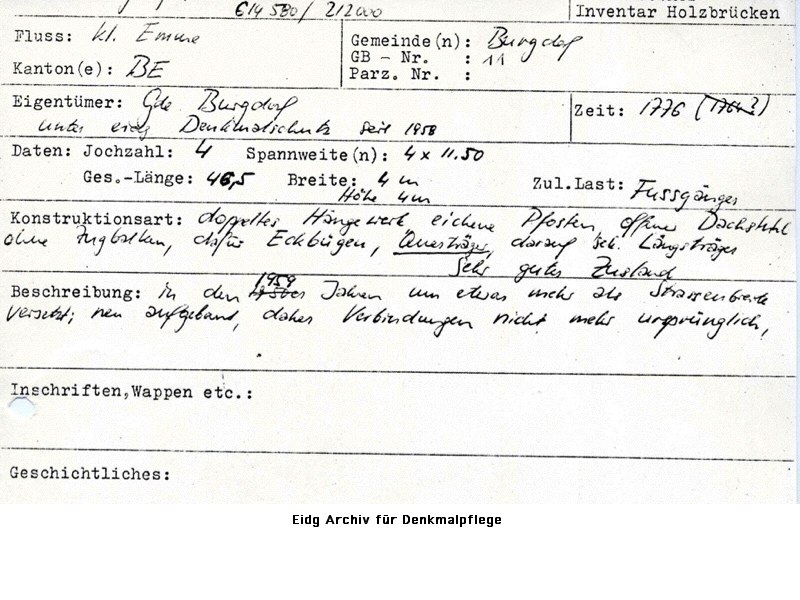 614 580 / 212000
Inventar Holzbrücken
Fluss: kl. Emme
Gemeinde(n): Burgdorf
GB - Nr. : 11
Kanton(e): BE
Parz. Nr. :
Eigentümer: Gde Burgdorf
Zeit: 1776 (1764?)
unter eidg Denkmalschutz seit 1958
Daten: Jochzahl: 4 Spannweite(n): 4 x 11.50
Ges.-Länge: 46,5 Breite: 4 m Zul.Last: Fussgänger
Höhe 4m
Konstruktionsart: doppeltes Hängewerk eichene Pfosten, offener Dachstuhl
ohne Zugbalken, dafür Eckbügen, Querträger, darauf sek. Längsträger
Sehr guter Zustand
Beschreibung: in den 1959 Jahren um etwas mehr als Strassenbreite
versetzt; neu aufgebaut, daher Verbindungen nicht mehr ursprünglich,
Inschriften,Wappen etc.:
Geschichtliches:
Eidg Archiv für Denkmalpflege